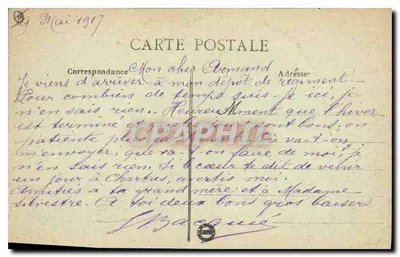 Mai 1917
CARTE POSTALE
Correspondance
Adresse
Mon cher Armand
Je viens d'arriver à mon dépôt de régiment
Pour combien de temps suis-je ici, je
n'en sais rien. Heureusement que l'hiver
est terminé bons, on
patiente va-t-on
m'envoyer, que faire de moi, je
n'en sais rien. Si le cœur te dit de venir
un jour à Chartres, avertis moi.
Amitiés à ta grand mère et à Madame
Silvestre. A toi deux bons gros baisers